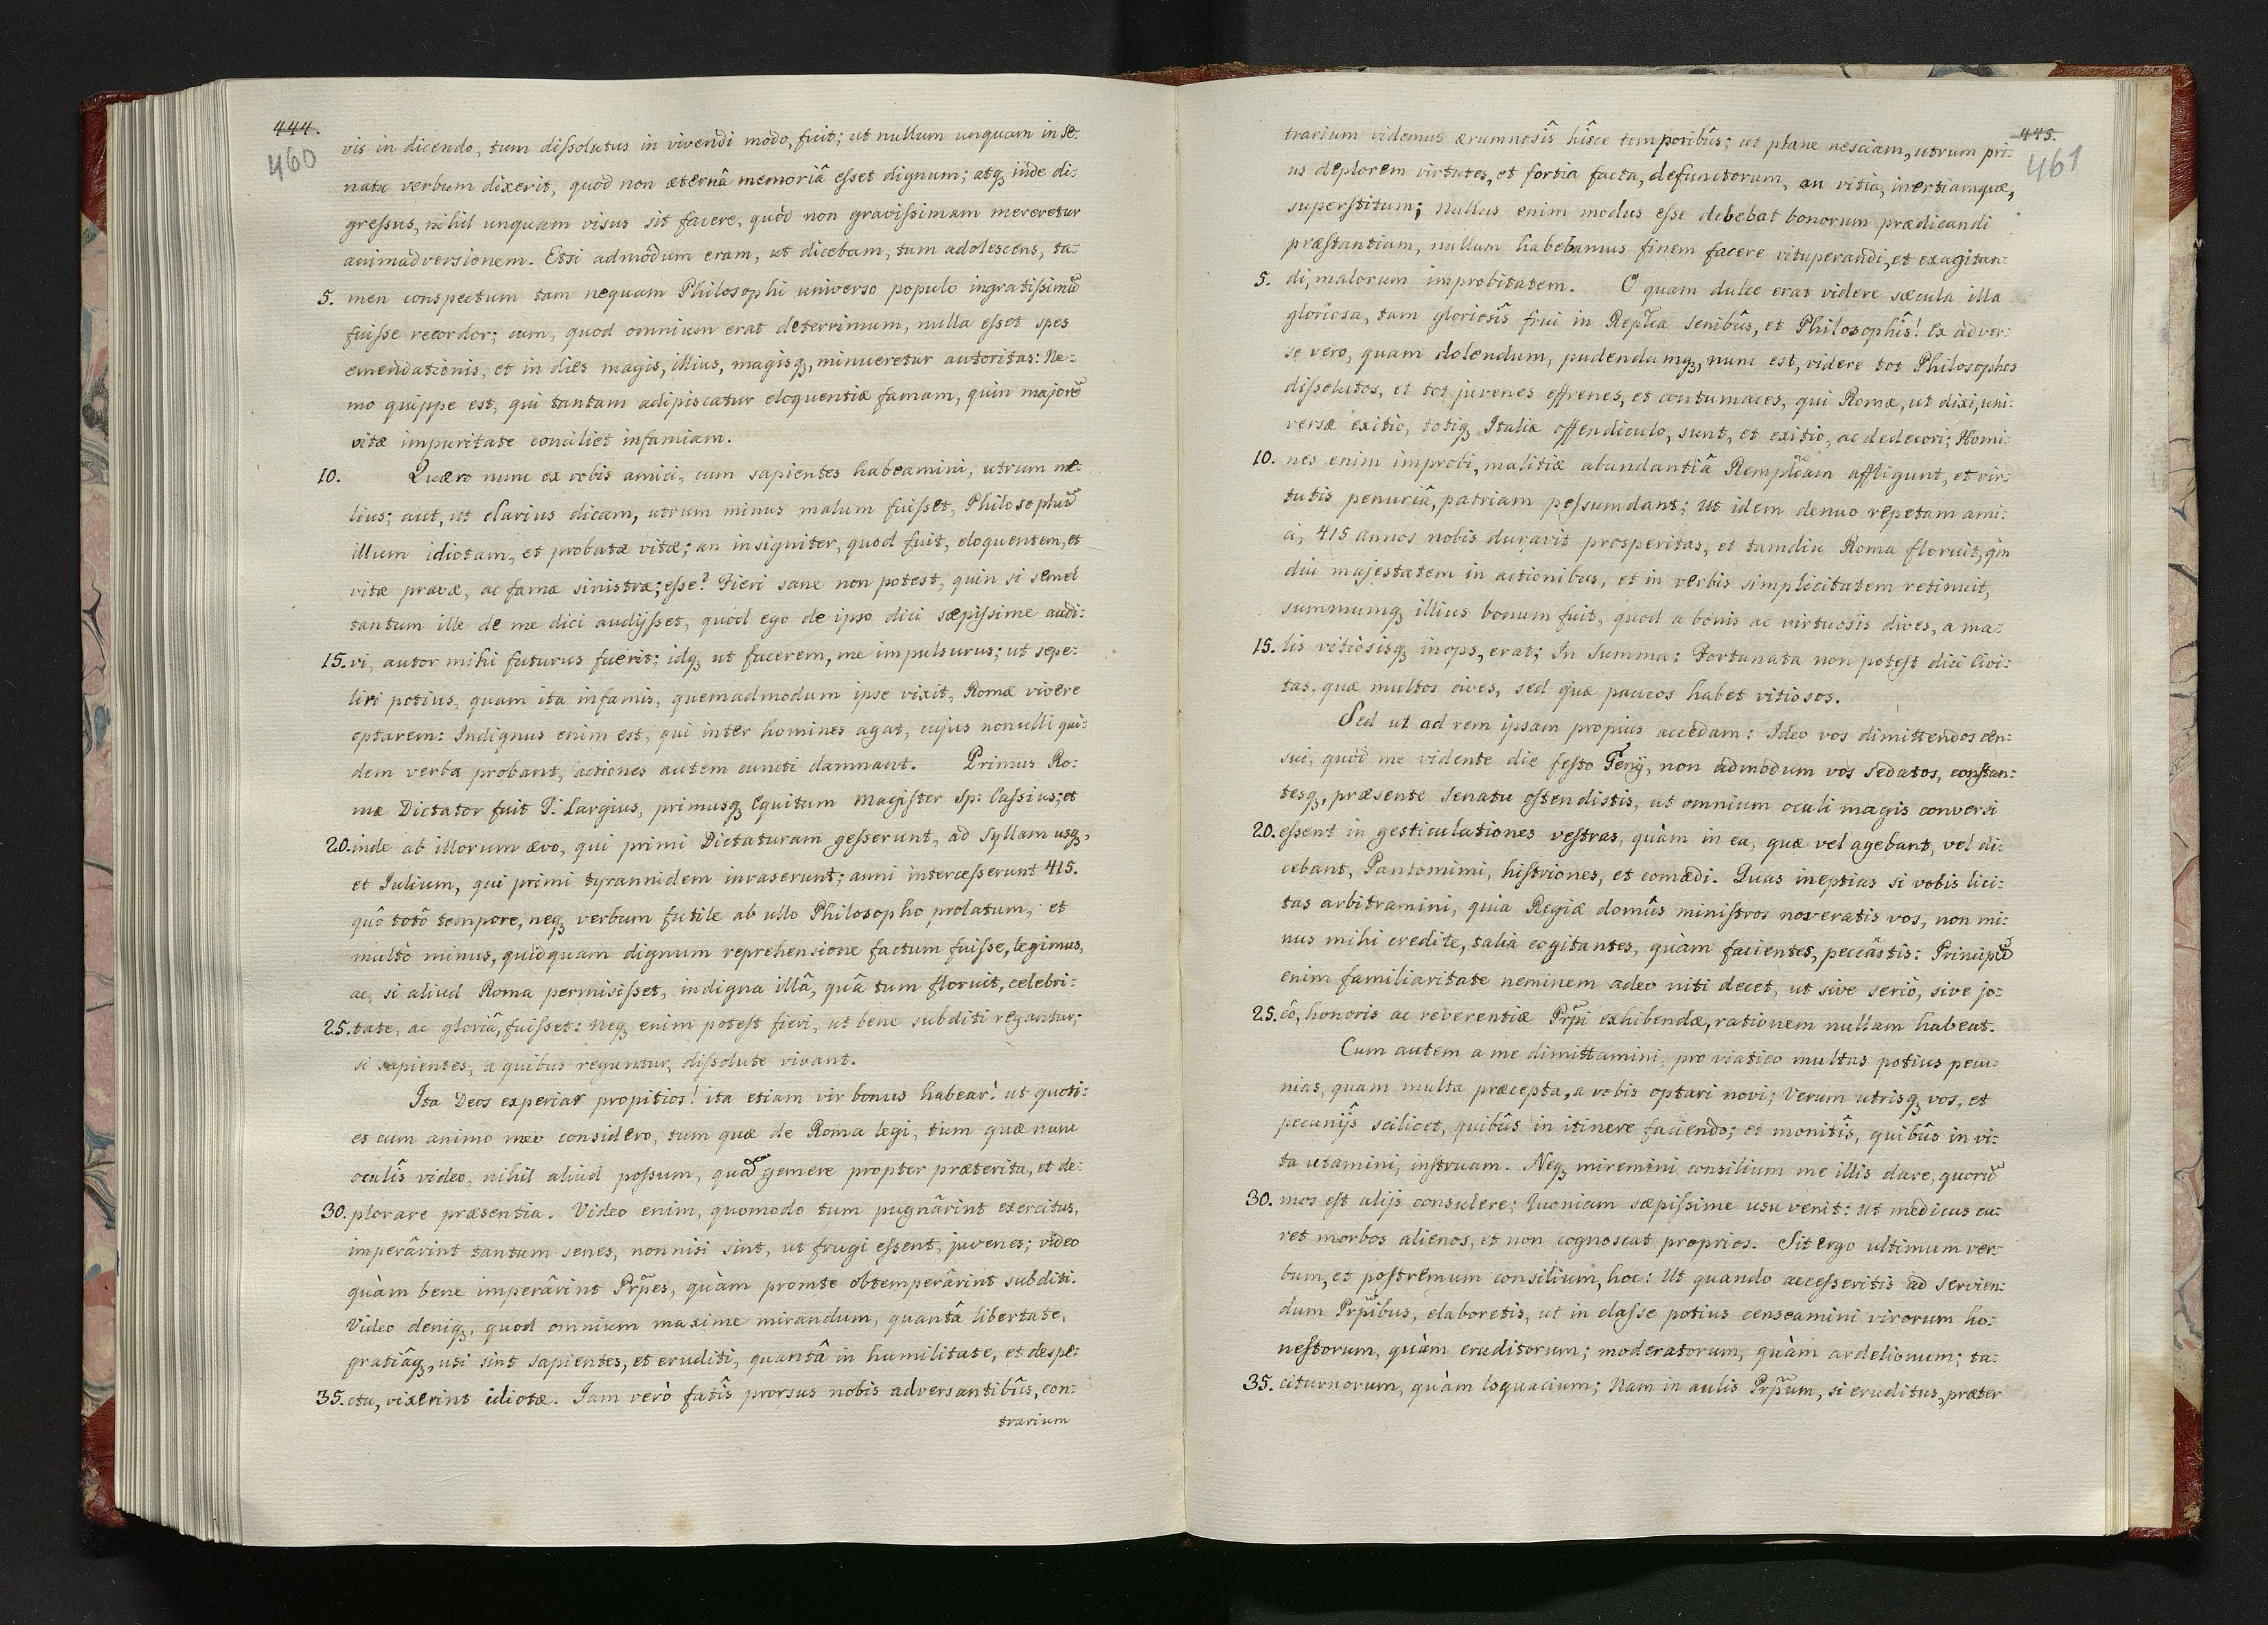 444.
460
vis in dicendo, tum dissolutus in vivendi modo, fuit; ut nullum unquam in se:
natu verbum dixerit, quod non æternâ memoriâ esset dignum; atq3 inde di:
gressus, nihil unquam visus sit facere, quòd non gravissimam mereretur
animadversionem. Etsi admôdum eram, ut dicebam, tum adolescens, ta:
5. men conspectum tam nequam Philosophi universo populo ingratissimũ
fuisse recordor; cum, quod omnium erat deterrimum, nulla esset spes
emendationis, et in dies magis, illius, magisq3, minueretur autoritas: Ne:
mo quippe est, qui tantam adipiscatur eloquentiæ famam, quin majorẽ
vitæ impuritate conciliet infamiam.
10. Quæro nunc ex vobis amici, cum sapientes habeamini, utrum me:
lius; aut, ut clarius dicam, utrum minus malum fuisset, Philosophũ
illum idiotam, et probatæ vitæ; an insigniter, quod fuit, eloquentem, et
vitæ pravæ, ac famæ sinistræ; esse? Fieri sane non potest, quin si semel
tantum ille de me dici audijsset, quòd ego de ipso dici sæpissime audi:
15. vi, autor mihi futurus fuerit; idq3 ut facerem, me impulsurus; ut sepe:
liri potius, quam ita infamis, quemadmodum ipse vixit, Romæ vivere
optarem: Indignus enim est, qui inter homines agat, cujus nonulli qui:
dem verba probant, actiones autem cuncti damnant. Primus Ro:
mæ Dictator fuit T: Largius, primusq3 Equitum Magister Sp: Cassius; et
20. inde ab illorum ævo, qui primi Dictaturam gesserunt, ad Syllam usq3,
et Iulium, qui primi tyrannidem invaserunt; anni intercesserunt 415.
quô totô tempore, neq3 verbum futile ab ullo Philosopho prolatum, et
multò minus, quidquam dignum reprehensione factum fuisse, legimus,
ac, si aliud Roma permisisset, indigna illâ, quâ tum floruit, celebri:
25. tate, ac gloriâ, fuisset: Neq3 enim potest fieri, ut bene subditi regantur;
si sapientes, a quibus reguntur, dissolute vivant.
Ita Deos experiar propitios! ita etiam vir bonus habear! ut quoti:
es cum animo meo considero, tum quæ de Roma legi, tum quæ nunc
oculîs video, nihil aliud possum, quã gemere propter præterita, et de:
30. plorare præsentia. Video enim, quomodo tum pugnârint exercitus,
imperârint tantum senes, nonnisi sint, ut frugi essent, juvenes; video
quàm bene imperârint Prp̃es, quàm promte obtemperârint subditi.
Video deniq3, quod omnium maxime mirandum, quantâ libertate,
gratiâq3, usi sint sapientes, et eruditi, quantâ in humilitate, et despe:
35. ctu, vixerint idiotæ. Iam verò fatîs prorsus nobis adversantibûs, con:
trarium
445.
461
trarium videmus ærumnosîs hîsce temporibûs; ut plane nesciam, utrum pri:
us deplorem virtutes, et fortia facta, defunctorum, an vitia, inertiamquæ,
superstitum; Nullus enim modus esse debebat bonorum prædicandi
præstantiam, nullum habebamus finem facere vituperandi, et exagitan:
5. di, malorum improbitatem. O quam dulce erat videre sæcula illa
gloriosa, tam gloriosîs frui in Rep̃lica senibûs, et Philosophîs! Ex àdver:
se vero, quam dolendum, pudendumq3, nunc est, videre tot Philosophos
dissolutos, et tot juvenes effrenes, et contumaces, qui Romæ, ut dixi, uni:
versæ exitio, totiq3 Italiæ offendiculo, sunt, et exitio, ac dedecori; Homi:
10. nes enim improbi, malitiæ abundantiâ Remp̃licam affligunt, et vir:
tutis penuriâ, patriam pessumdant; Ut idem denuo repetam ami:
ci, 415 annos nobis duravit prosperitas, et tamdiu Roma floruit, q̃m
diu majestatem in actionibus, et in verbis simplicitatem retinuit,
summumq3 illius bonum fuit, quod a bonis ac virtuosis dives, a ma:
15. lis vitiosisq3 inops, erat; In Summa: Fortunata non potest dici Civi:
tas, quæ multos cives, sed quæ paucos habet vitiosos.
Sed ut ad rem ipsam propius accedam: Ideo vos dimittendos cen:
sui, quòd me vidente die festo Genij, non admodum vos sedatos, constan:
tesq3, præsente Senatu ostendistis, ut omnium oculi magis conversi
20. essent in gesticulationes vestras, quàm in ea, quæ vel agebant, vel di:
cebant, Pantomimi, histriones, et comædi. Quas ineptias si vobis lici:
tas arbitramini, quia Regiæ domûs ministros noveratis vos, non mi:
nus mihi credite, talia cogitantes, quàm facientes, peccâstis: Principũ
enim familiaritate neminem adeo niti decet, ut sive seriò, sive jo:
25. cô, honoris ac reverentiæ Prp̃i exhibendæ, rationem nullam habeat.
Cum autem a me dimittamini, pro viatico multas potius pecu:
nias, quam multa præcepta, a vobis optari novi; Verum utrisq3 vos, et
pecunijs scilicet, quibûs in itinere faciendo; et monitîs, quibûs in vi:
ta utamini, instruam. Neq3 miremini consilium me illis dare, quorũ
30. mos est alijs consulere; Quoniam sæpissime usu venit: Ut medicus cu:
ret morbos alienos, et non cognoscat proprios. Sit ergo ultimum ver:
bum, et postremum consilium, hoc: Ut quando accesseritis ad servien:
dum Prp̃ibus, elaboretis, ut in classe potius censeamini virorum ho:
nestorum, quàm eruditorum; moderatorum, quàm ardelionum; ta:
35. citurnorum, quàm loquacium; Nam in aulis Prp̃um, si eruditus, præter